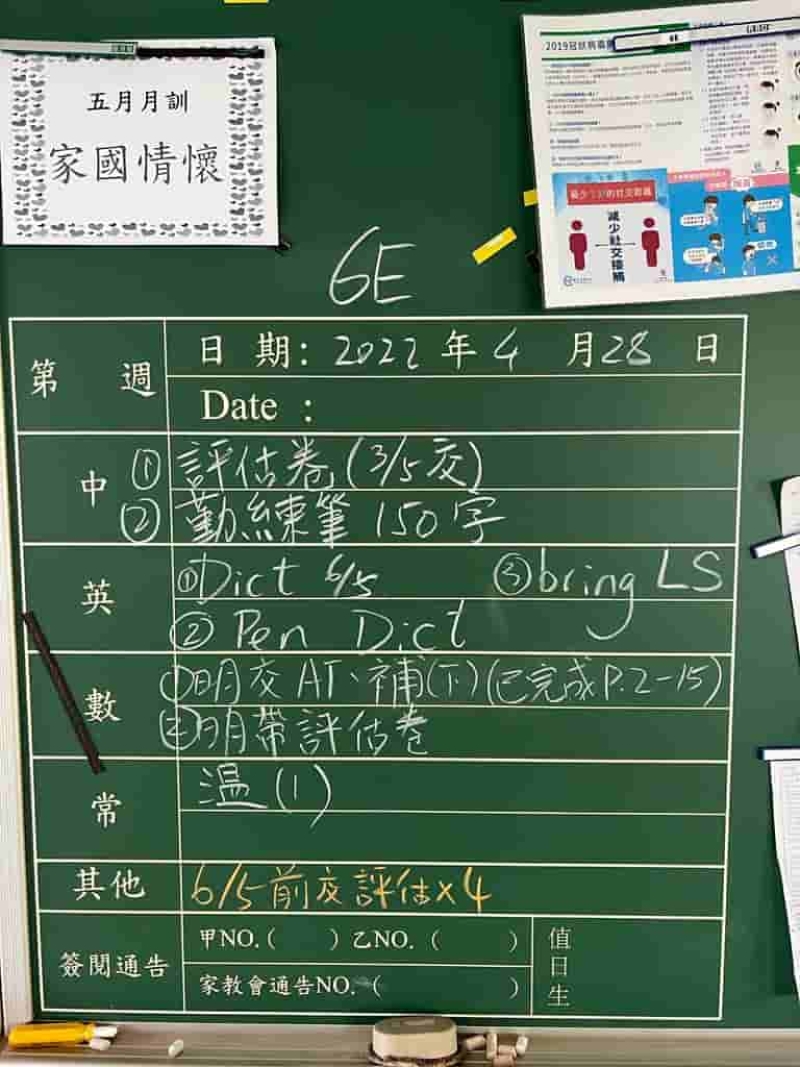 五月月訓
家國情懷
2019冠狀病毒
減少社交接觸
6E
第 週
日 期: 2022 年 4 月 28 日
Date :
中
① 評估卷 (3/5交)
② 勤練筆 150字
英
①Dict 6/5 ③bring LS
② Pen Dict
數
①明交 AT、補(下)(已完成P.2-15)
②明帶評估卷
常
溫(1)
其他
6/5前交評估×4
簽閱通告
甲NO.( ) 乙NO. ( )
家教會通告NO. ( )
值日生